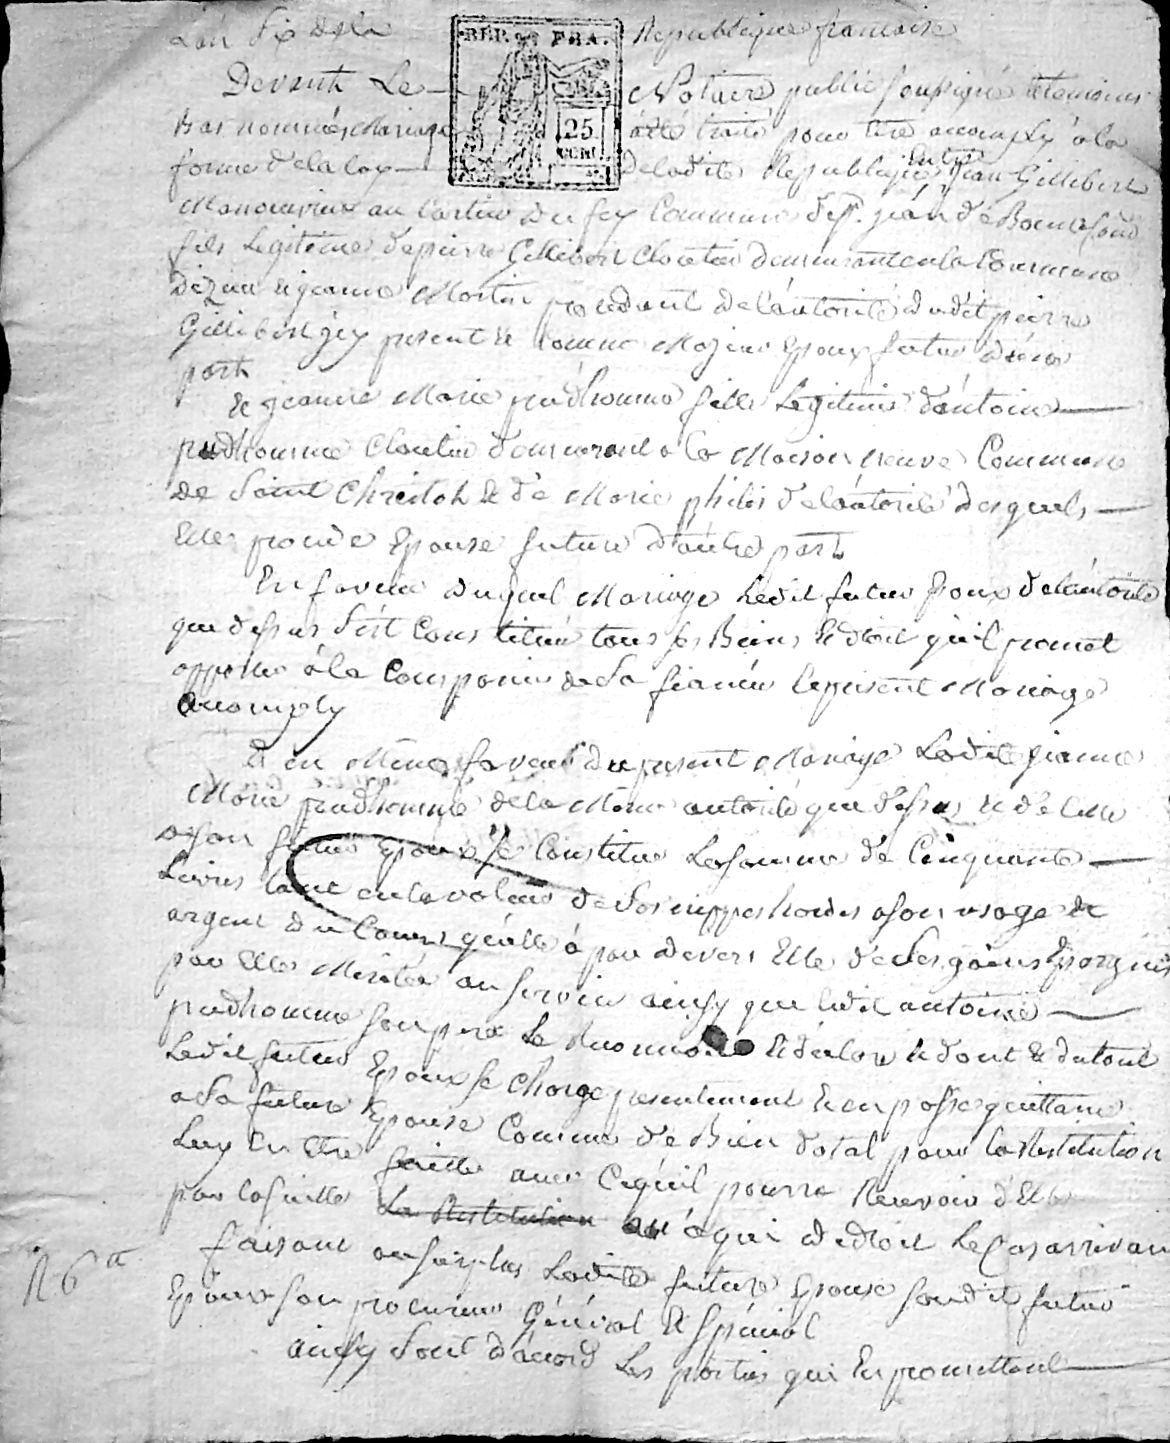 L'an six de la République francaise
REP. FRA.
25 CENT.
Devant Le Notaire public soussigné & temoins
Bas nommés Mariage a été traité pour être accomply à la
forme de la loy de la dite République entre jean Gillibert
Manouvrier au Cartier du fey Commune de st. jean de Bonnefond
fils Legitime de pierre Gillibert Cloutier demeurant en la Commune
Dizieu & jeanne Martin procédant de l'autorité du dit pierre
Gillibert jcy present & comme Majeur Epoux futur d'une
part
& jeanne Marie prudhomme fille Legitime d'antoine
prudhomme Cloutier demeurant a la Maison neuve Commune
de Saint Christoh & de Marie philis de l'autorité desquels
Elle procède Epouse future d'autre part
En faveur duquel Mariage Ledit futur Epoux de l'autorité
que dessus s'est Constitué tous ses Biens & droit qu'il promet
apporter à la Compagnie de Sa fiancée le present Mariage
accomply
& en Même faveur du present Mariage Ladite jeanne
Marie prudhomme de la Même autorité que dessus & de celle
de son futur Epoux Se Constitue La somme de Cinquante
Livres tant en la valeur de Ses nippes hardes a son usage &
argent du Cours qu'elle a par devers Elle de Ses gains Epargnes
par Elle Mérités au service ainsy que ledit antoine
prudhomme son pere Le Reconnoit & déclare & dont & du tout
Ledit futur Epoux se Charge presentement & en passe quittance
a Sa future Epouse Comme de Bien dotal pour la Restitution
Luy en être faitte avec Ce qu'il pourra Recevoir d'Elle
par la suitte La Restitution a qui de droit Le Cas arrivant
faisant au surplus Ladite future Epouse son dit futur
Epoux son procureur Général & Spécial
ainsy Sont d'acord Les parties qui En promettent